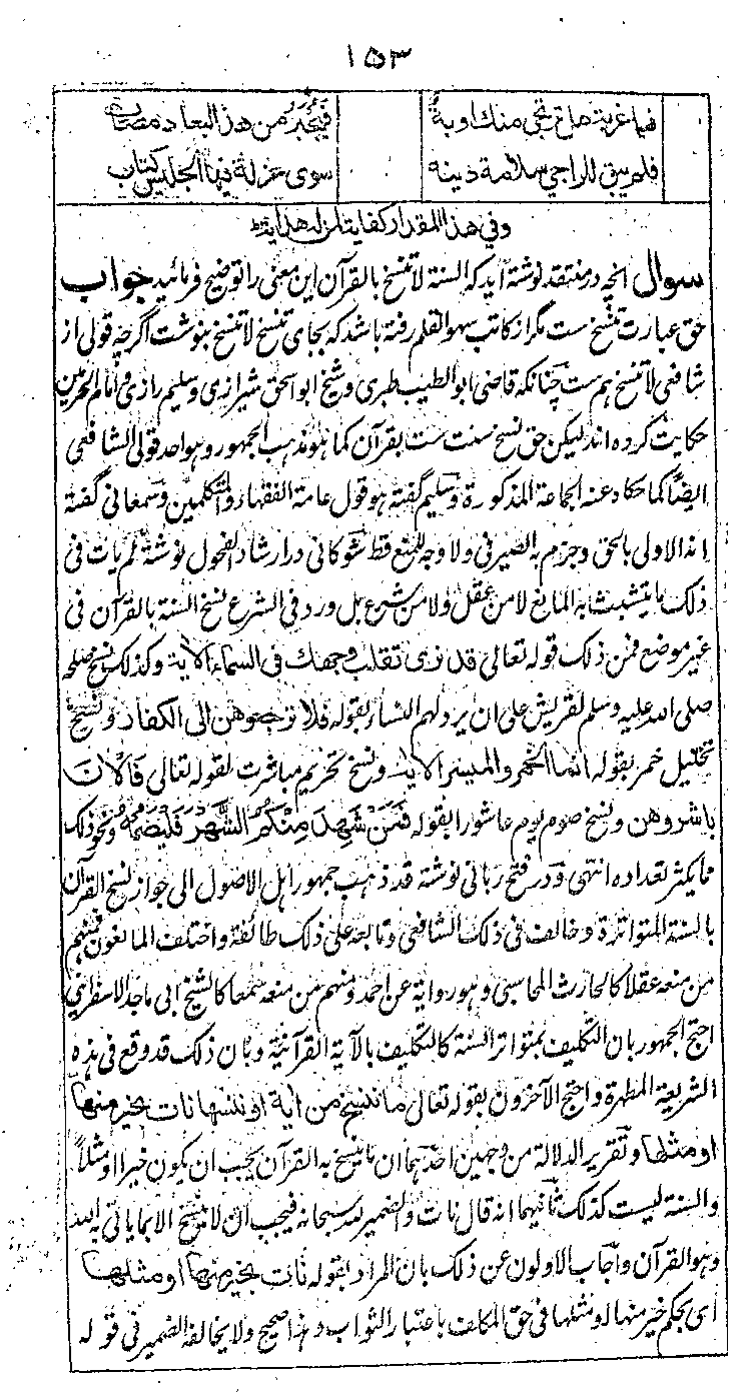 ۱۵۳
فيا غربة هل ترتجى منك اوبة فيخبر من هذا البعاد مصاب
فلم يبق للراجي سلامة دينه سوى عزلة فيها الجليس كتاب
وفي هذا المقدار كفاية لمن له هداية
سوال انچه در منتقد نوشته آید که السنة لا تنسخ بالقرآن این معنی را توضیح فرمائید جواب
حق عبارت تنسخ ست مگر از کاتب سهو القلم رفته باشد که بجای تنسخ لا تنسخ بنوشت اگرچه قولی از
شافعی لا تنسخ هم ست چنانکه قاضی ابو الطیب طبری و شیخ ابو اسحق شیرازی و سلیم رازی و امام الحرمین
حکایت کرده اند لیکن حق نسخ سنت ست بقرآن کما هو مذهب الجمهور وهو احد قولی الشافعی
ایضًا کما حکاه عنه الجماعة المذکورة و سلیم گفته هو قول عامة الفقهاء والمتکلمین و سمعانی گفته
انه الاولی بالحق وجزم به الصیرفی ولا وجه للمنع قط شوکانی در ارشاد الفحول نوشته لم یات فی
ذلک ما یتشبث به المانع لا من عقل ولا من شرع بل ورد فی الشرع نسخ السنة بالقرآن فی
غیر موضع فمن ذلک قوله تعالی قد نری تقلب وجهك فی السماء الآیة وکذلک نسخ صلحه
صلی الله علیه وسلم لقریش علی ان یرد لهم النساء بقوله فلا ترجعوهن الی الکفار ونسخ
تحلیل خمر بقوله انما الخمر والمیسر الآیة ونسخ تحریم مباشرت بقوله تعالی فَالْآنَ
باشروهن ونسخ صوم یوم عاشورا بقوله فَمَنْ شَهِدَ مِنْكُمُ الشَّهْرَ فَلْيَصُمْهُ ونحو ذلک
مما یکثر تعداده انتهی و در فتح ربانی نوشته قد ذهب جمهور اهل الاصول الی جواز نسخ القرآن
بالسنة المتواترة وخالف فی ذلک الشافعی وتابعه علی ذلک طائفة واختلف المانعون فمنهم
من منعه عقلا کالحارث المحاسبی وهو روایة عن احمد ومنهم من منعه سمعا کالشیخ ابی حامد الاسفراینی
احتج الجمهور بان التکلیف بمتواتر السنة کالتکلیف بالآیة القرآنیة وبان ذلک قد وقع فی هذه
الشریعة المطهرة واحتج الآخرون بقوله تعالی ما ننسخ من آیة او ننسها نات بخیر منها
او مثلها وتقریر الدلالة من وجهین احدهما ان ما ینسخ به القرآن یجب ان یکون خیرا او مثلًا
والسنة لیست کذلک ثانیهما انه قال نات والضمیر لله سبحانه فیجب ان لا ینسخ الا بما یاتی به الله
وهو القرآن واجاب الاولون عن ذلک بان المراد بقوله نات بخیر منها او مثلها
ای بحکم خیر منها او مثلها فی حق المکلف باعتبار الثواب وهذا صحیح ولا یخالفه الضمیر فی قوله